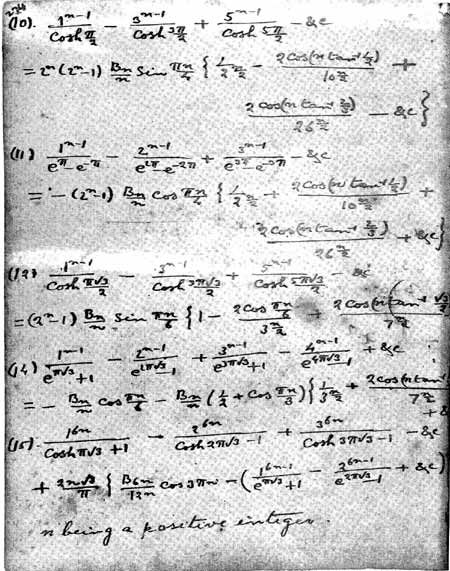 (10). 1^{n-1}/Cosh π/2 − 3^{n-1}/Cosh 3π/2 + 5^{n-1}/Cosh 5π/2 − &c
= 2^n (2^n−1) Bn/n Sin πn/4 { 1/2^{n/2} − 2Cos(n tan⁻¹ 1/2)/10^{n/2} +
2Cos(n tan⁻¹ 2/3)/26^{n/2} − &c }
(11) 1^{n-1}/e^π−e^{-π} − 2^{n-1}/e^{2π}−e^{-2π} + 3^{n-1}/e^{3π}−e^{-3π} − &c
= − (2^n−1) Bn/n Cos πn/4 { 1/2^{n/2} + 2Cos(n tan⁻¹ 1/2)/10^{n/2} +
2Cos(n tan⁻¹ 2/3)/26^{n/2} + &c }
(12) 1^{n-1}/Cosh π√3/2 − 3^{n-1}/Cosh 3π√3/2 + 5^{n-1}/Cosh 5π√3/2 − &c
= (2^n−1) Bn/n Sin πn/6 { 1 − 2Cos πn/6/3^{n/2} + 2Cos(n tan⁻¹ √3/2)/7^{n/2}
(14) 1^{n-1}/e^{π√3}+1 − 2^{n-1}/e^{2π√3}−1 + 3^{n-1}/e^{3π√3}+1 − 4^{n-1}/e^{4π√3}−1 + &c
= − Bn/n Cos πn/6 − Bn/n (1/2 + Cos πn/3) { 1/3^{n/2} + 2Cos(n tan⁻¹ /7^{n/2}
+ &
(15). 1^{6n}/Cosh π√3 + 1 − 2^{6n}/Cosh 2π√3 − 1 + 3^{6n}/Cosh 3π√3 + 1 − &c
+ 2n√3/π { B6n/12n cos 3πn − ( 1^{6n-1}/e^{π√3}+1 − 2^{6n-1}/e^{2π√3}−1 + &c )
n being a positive integer.